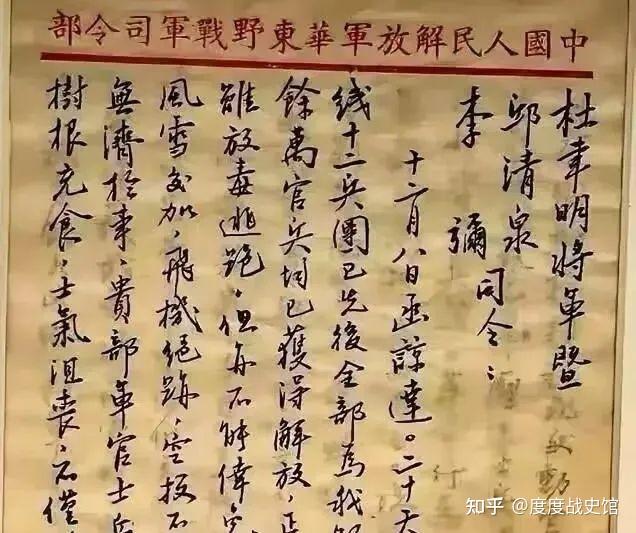 中國人民解放軍華東野戰軍司令部
杜聿明將軍暨
邱清泉
李彌司令：
十二月八日函諒達。二十天
线十二兵團已先後全部為我
餘萬官兵均已獲得解放，正
雖放毒逃跑，但每不能倖
風雪交加，飛機絕跡，空投不
無濟於事，貴部軍官士兵
樹根充食，士氣沮喪，不僅
知乎 @度度战史馆